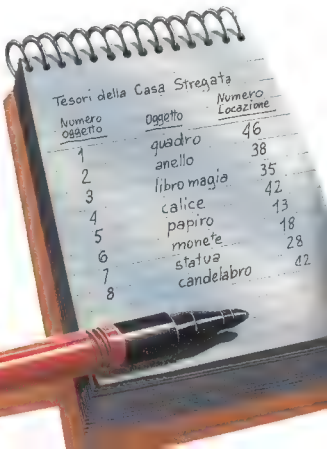 Tesori della Casa Stregata
Numero oggetto Oggetto Numero Locazione
1 quadro 46
2 anello 38
3 libro magia 35
4 calice 42
5 papiro 13
6 monete 18
7 statua 28
8 candelabro 42